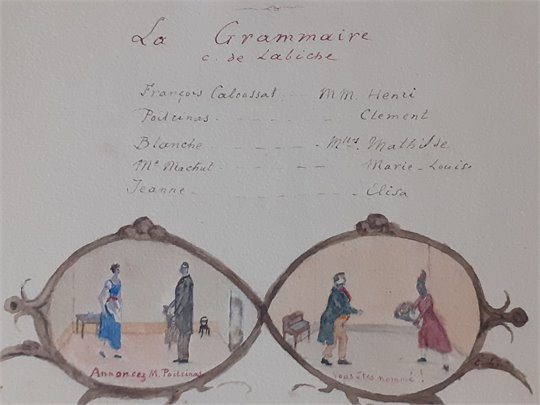 La Grammaire
c. de Labiche
François Caloussat - - MM. Henri
Poitrinas - - - - - - Clement
Blanche - - - - - - Mlles Mathilde
Me Machut - - - - - Marie-Louise
Jeanne - - - - - - Elisa
Annoncez M. Poitrinas
Vous êtes nommé !